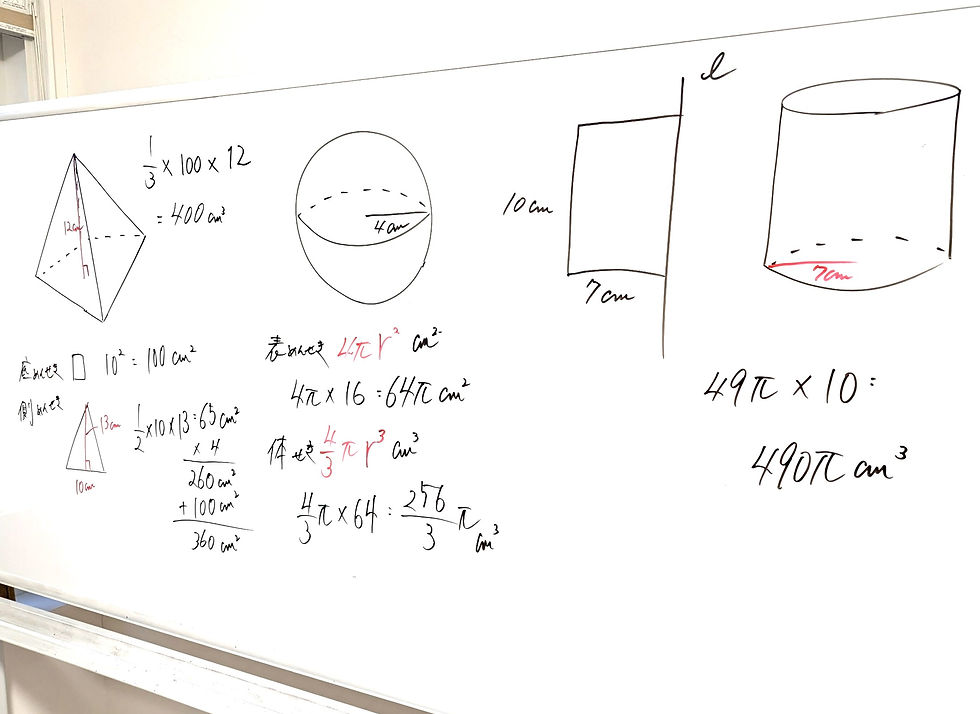 1/3 × 100 × 12
= 400 cm³
12cm
底めんせき □ 10² = 100 cm²
側めんせき
13cm
10cm
1/2 × 10 × 13 = 65 cm²
× 4
260 cm²
+ 100 cm²
360 cm²
4cm
表めんせき 4πr² cm²
4π × 16 = 64π cm²
体せき 4/3 πr³ cm³
4/3 π × 64 = 256/3 π cm³
l
10cm
7cm
7cm
49π × 10 =
490π cm³